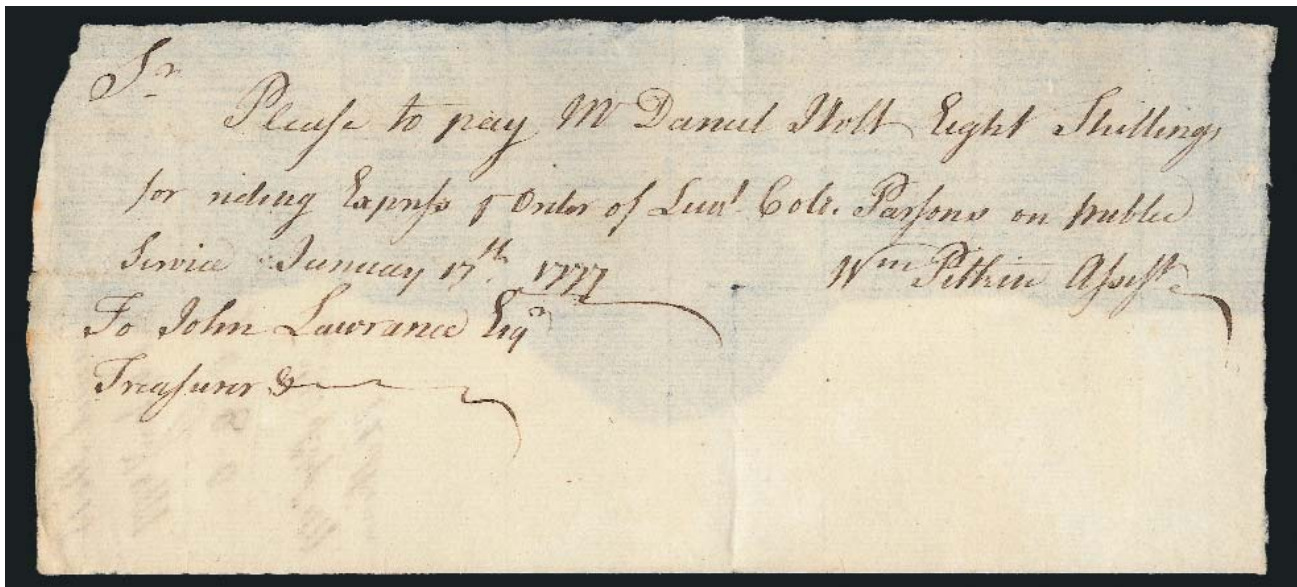 Sr
Please to pay Mr Daniel Holt Eight Shillings
for riding Express & Order of Lieut Colo. Parsons on publec
Service January 17th. 1777 Wm Pitkin Assistt
To John Lawrance Esqr
Treasurer &